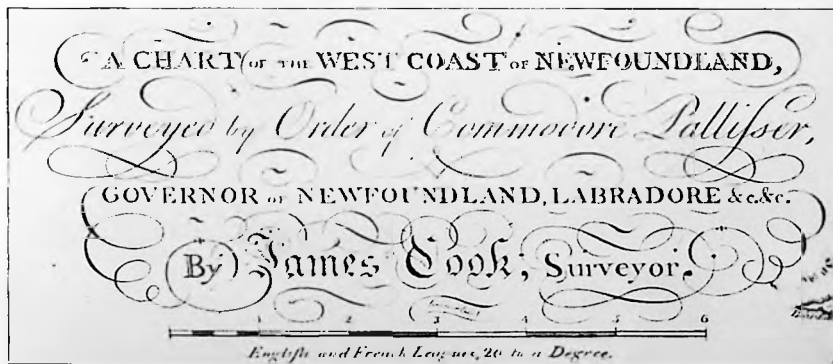 A CHART OF THE WEST COAST OF NEWFOUNDLAND,
Surveyed by Order of Commodore Pallisser,
GOVERNOR OF NEWFOUNDLAND, LABRADORE &c. &c.
By James Cook, Surveyor.
1 2 3 4 5 6
English and French Leagues, 20 to a Degree.